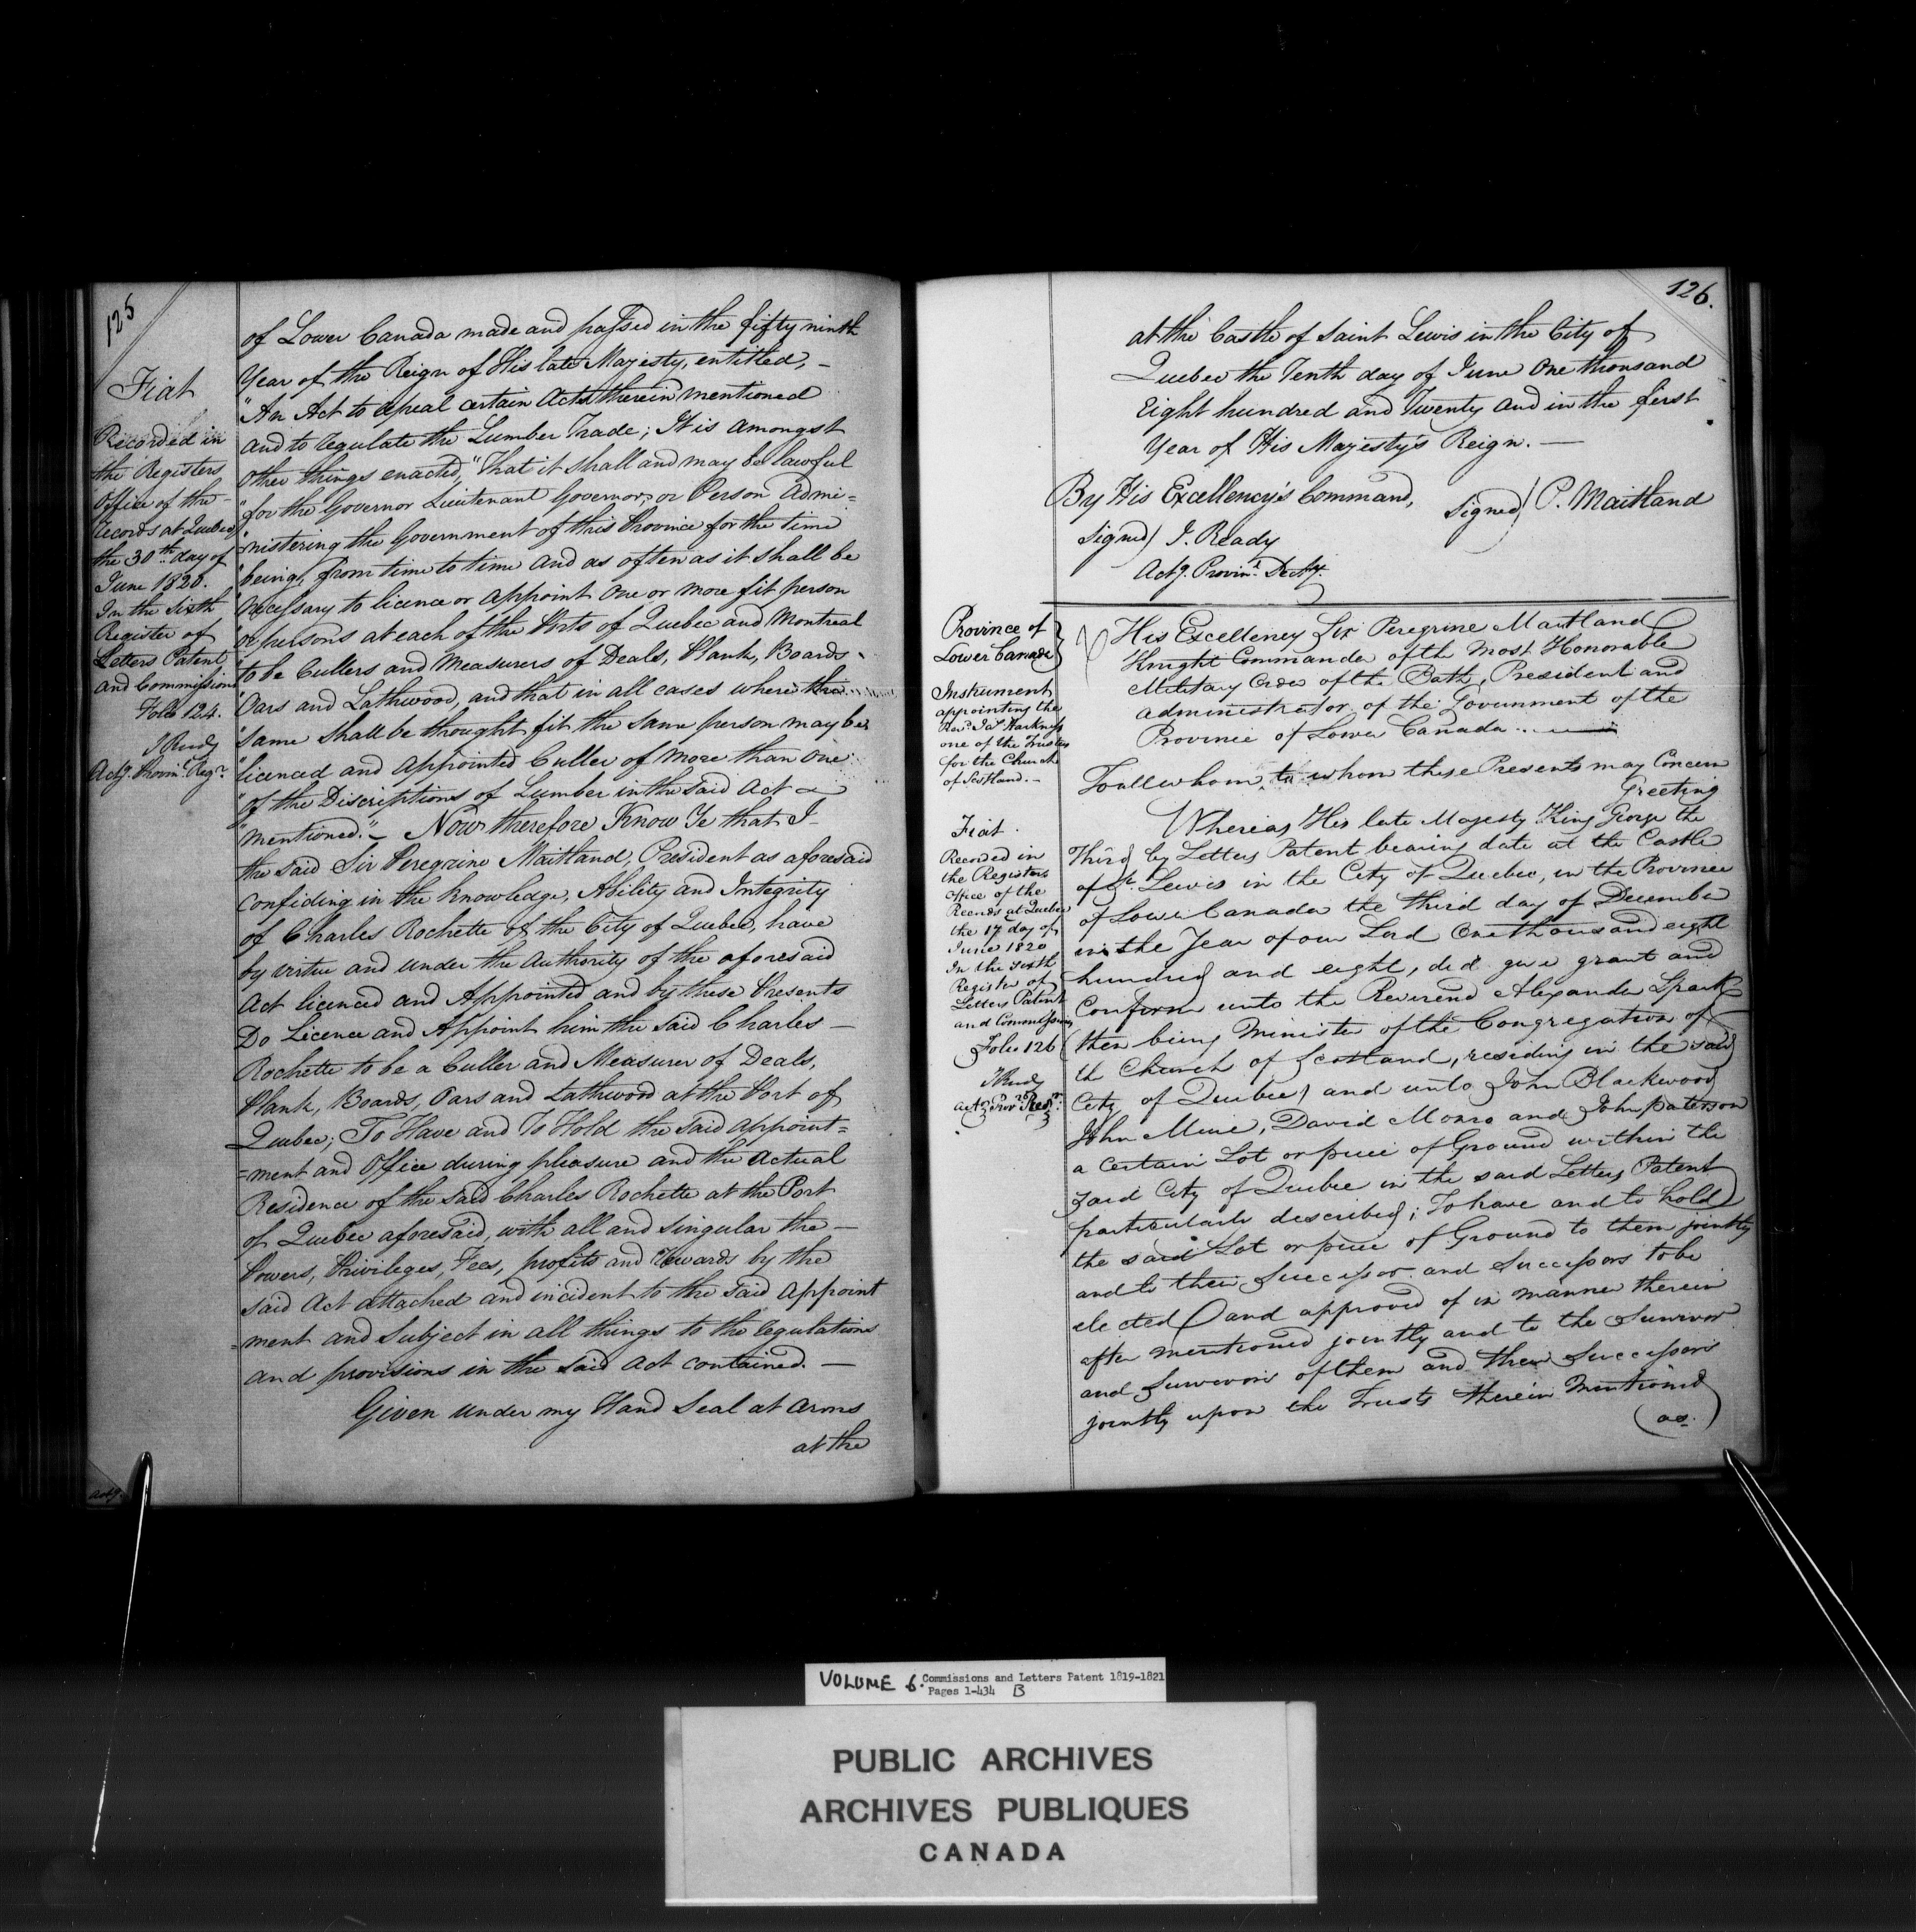 125
Fiat
Recorded in
the Registers
Office of the
Records at Quebec
the 30th day of
June 1820.
In the Sixth
Register of
Letters Patent
and Commissions
Folio 124.
J Ready
Actg. Provinl. Regr.
of Lower Canada made and passed in the fifty ninth
Year of the Reign of His late Majesty, entitled, –
"An Act to repeal certain Acts therein mentioned
and to regulate the Lumber Trade; It is amongst
other things enacted, "That it shall and may be lawful
"for the Governor Lieutenant Governor, or Person Admi=
"nistering the Government of this Province for the time
"being, from time to time and as often as it shall be
"necessary to licence or appoint one or more fit person
"or persons at each of the Ports of Quebec and Montreal
"to be Cullers and Measurers of Deals, Plank, Boards –
"Oars and Lathwood, and that in all cases where the
"same shall be thought fit the same person may be
"licenced and appointed Culler of more than one
"of the Discriptions of Lumber in the said Act –
"mentioned." – Now therefore Know Ye that I –
the said Sir Peregrine Maitland, President as aforesaid
confiding in the knowledge, Ability and Integrity
of Charles Rochette of the City of Quebec, have
by virtue and under the authority of the aforesaid
Act licenced and Appointed and by these Presents
Do Licence and Appoint him the said Charles –
Rochette to be a Culler and Measurer of Deals,
Plank, Boards, Oars and Lathwood at the Port of
Quebec; To Have and To Hold the said appoint=
=ment and Office during pleasure and the actual
Residence of the said Charles Rochette at the Port
of Quebec aforesaid, with all and singular the –
Powers, Privileges, Fees, profits and rewards by the
said Act attached and incident to the said appoint
=ment and Subject in all things to the regulations
and provisions in the said Act contained. –
Given under my Hand Seal at Arms
at the
Actg.
126.
at the Castle of Saint Lewis in the City of
Quebec the Tenth day of June One thousand
Eight hundred and Twenty and in the first
Year of His Majesty's Reign. –
By His Excellency's Command,
Signed) P. Maitland
Signed) J. Ready
Actg. Provinl. Secty.
Province of
Lower Canada}
Instrument
appointing the
Revd. Jas. Harkness
one of the Trustees
for the Church
of Scotland. –
Fiat.
Recorded in
the Registers
Office of the
Records at Quebec
the 17 day of
June 1820
In the sixth
Register of
Letters Patent
and Commissions
Folio 126
J Ready
Actg Provl. Regr.
His Excellency Sir Peregrine Maitland
Knight Commander of the Most Honorable
Military Order of the Bath, President and
administrator of the Government of the
Province of Lower Canada.
To all whom to whom these Presents may Concern
Greeting
Whereas His late Majesty King George the
Third by Letters Patent bearing date at the Castle
of St. Lewis in the City of Quebec, in the Province
of Lower Canada the third day of December
in the Year of our Lord One thousand eight
hundred and eight, did give grant and
Confirm unto the Reverend Alexander Spark
(then being Minister of the Congregation of
the Church of Scotland, residing in the said
City of Quebec) and unto John Blackwood
John Mure, David Monro and John Paterson
a certain Lot or piece of Ground within the
said City of Quebec in the said Letters Patent
particularly described; To have and to hold
the said Lot or piece of Ground to them jointly
and to their Successor and Successors to be
elected and approved of in manner therein
after mentioned jointly and to the Survivor
and Survivors of them and their Successors
jointly upon the Trusts therein Mentioned
(as.)
VOLUME 6. Commissions and Letters Patent 1819-1821
Pages 1-434 B
PUBLIC ARCHIVES
ARCHIVES PUBLIQUES
CANADA